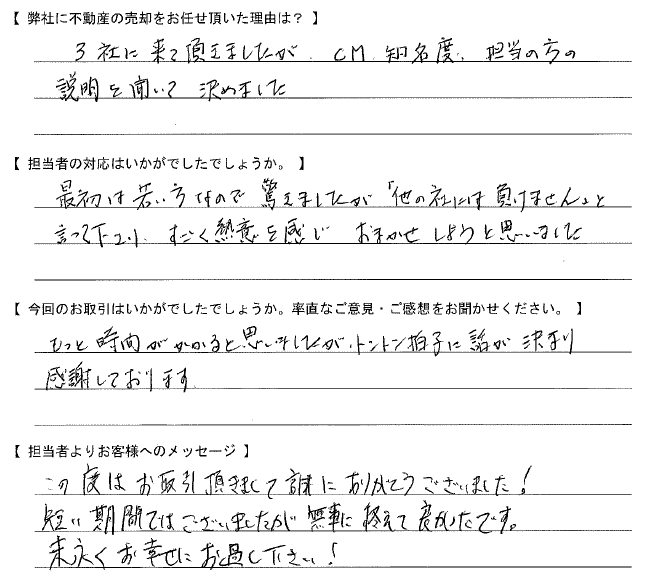 【 弊社に不動産の売却をお任せ頂いた理由は? 】
3社に来て頂きましたが、CM、知名度、担当の方の
説明を聞いて 決めました
【 担当者の対応はいかがでしたでしょうか。 】
最初は若い方なので驚きましたが「他の社には負けません。」と
言って下さり、すごく熱意を感じ おまかせしようと思いました
【 今回のお取引はいかがでしたでしょうか。率直なご意見・ご感想をお聞かせください。 】
もっと時間がかかると思いましたが、トントン拍子に話が決まり
感謝しております
【 担当者よりお客様へのメッセージ 】
この度はお取引頂きまして誠にありがとうございました!
短い期間ではございましたが無事に終えて良かったです。
末永くお幸せにお過し下さい!